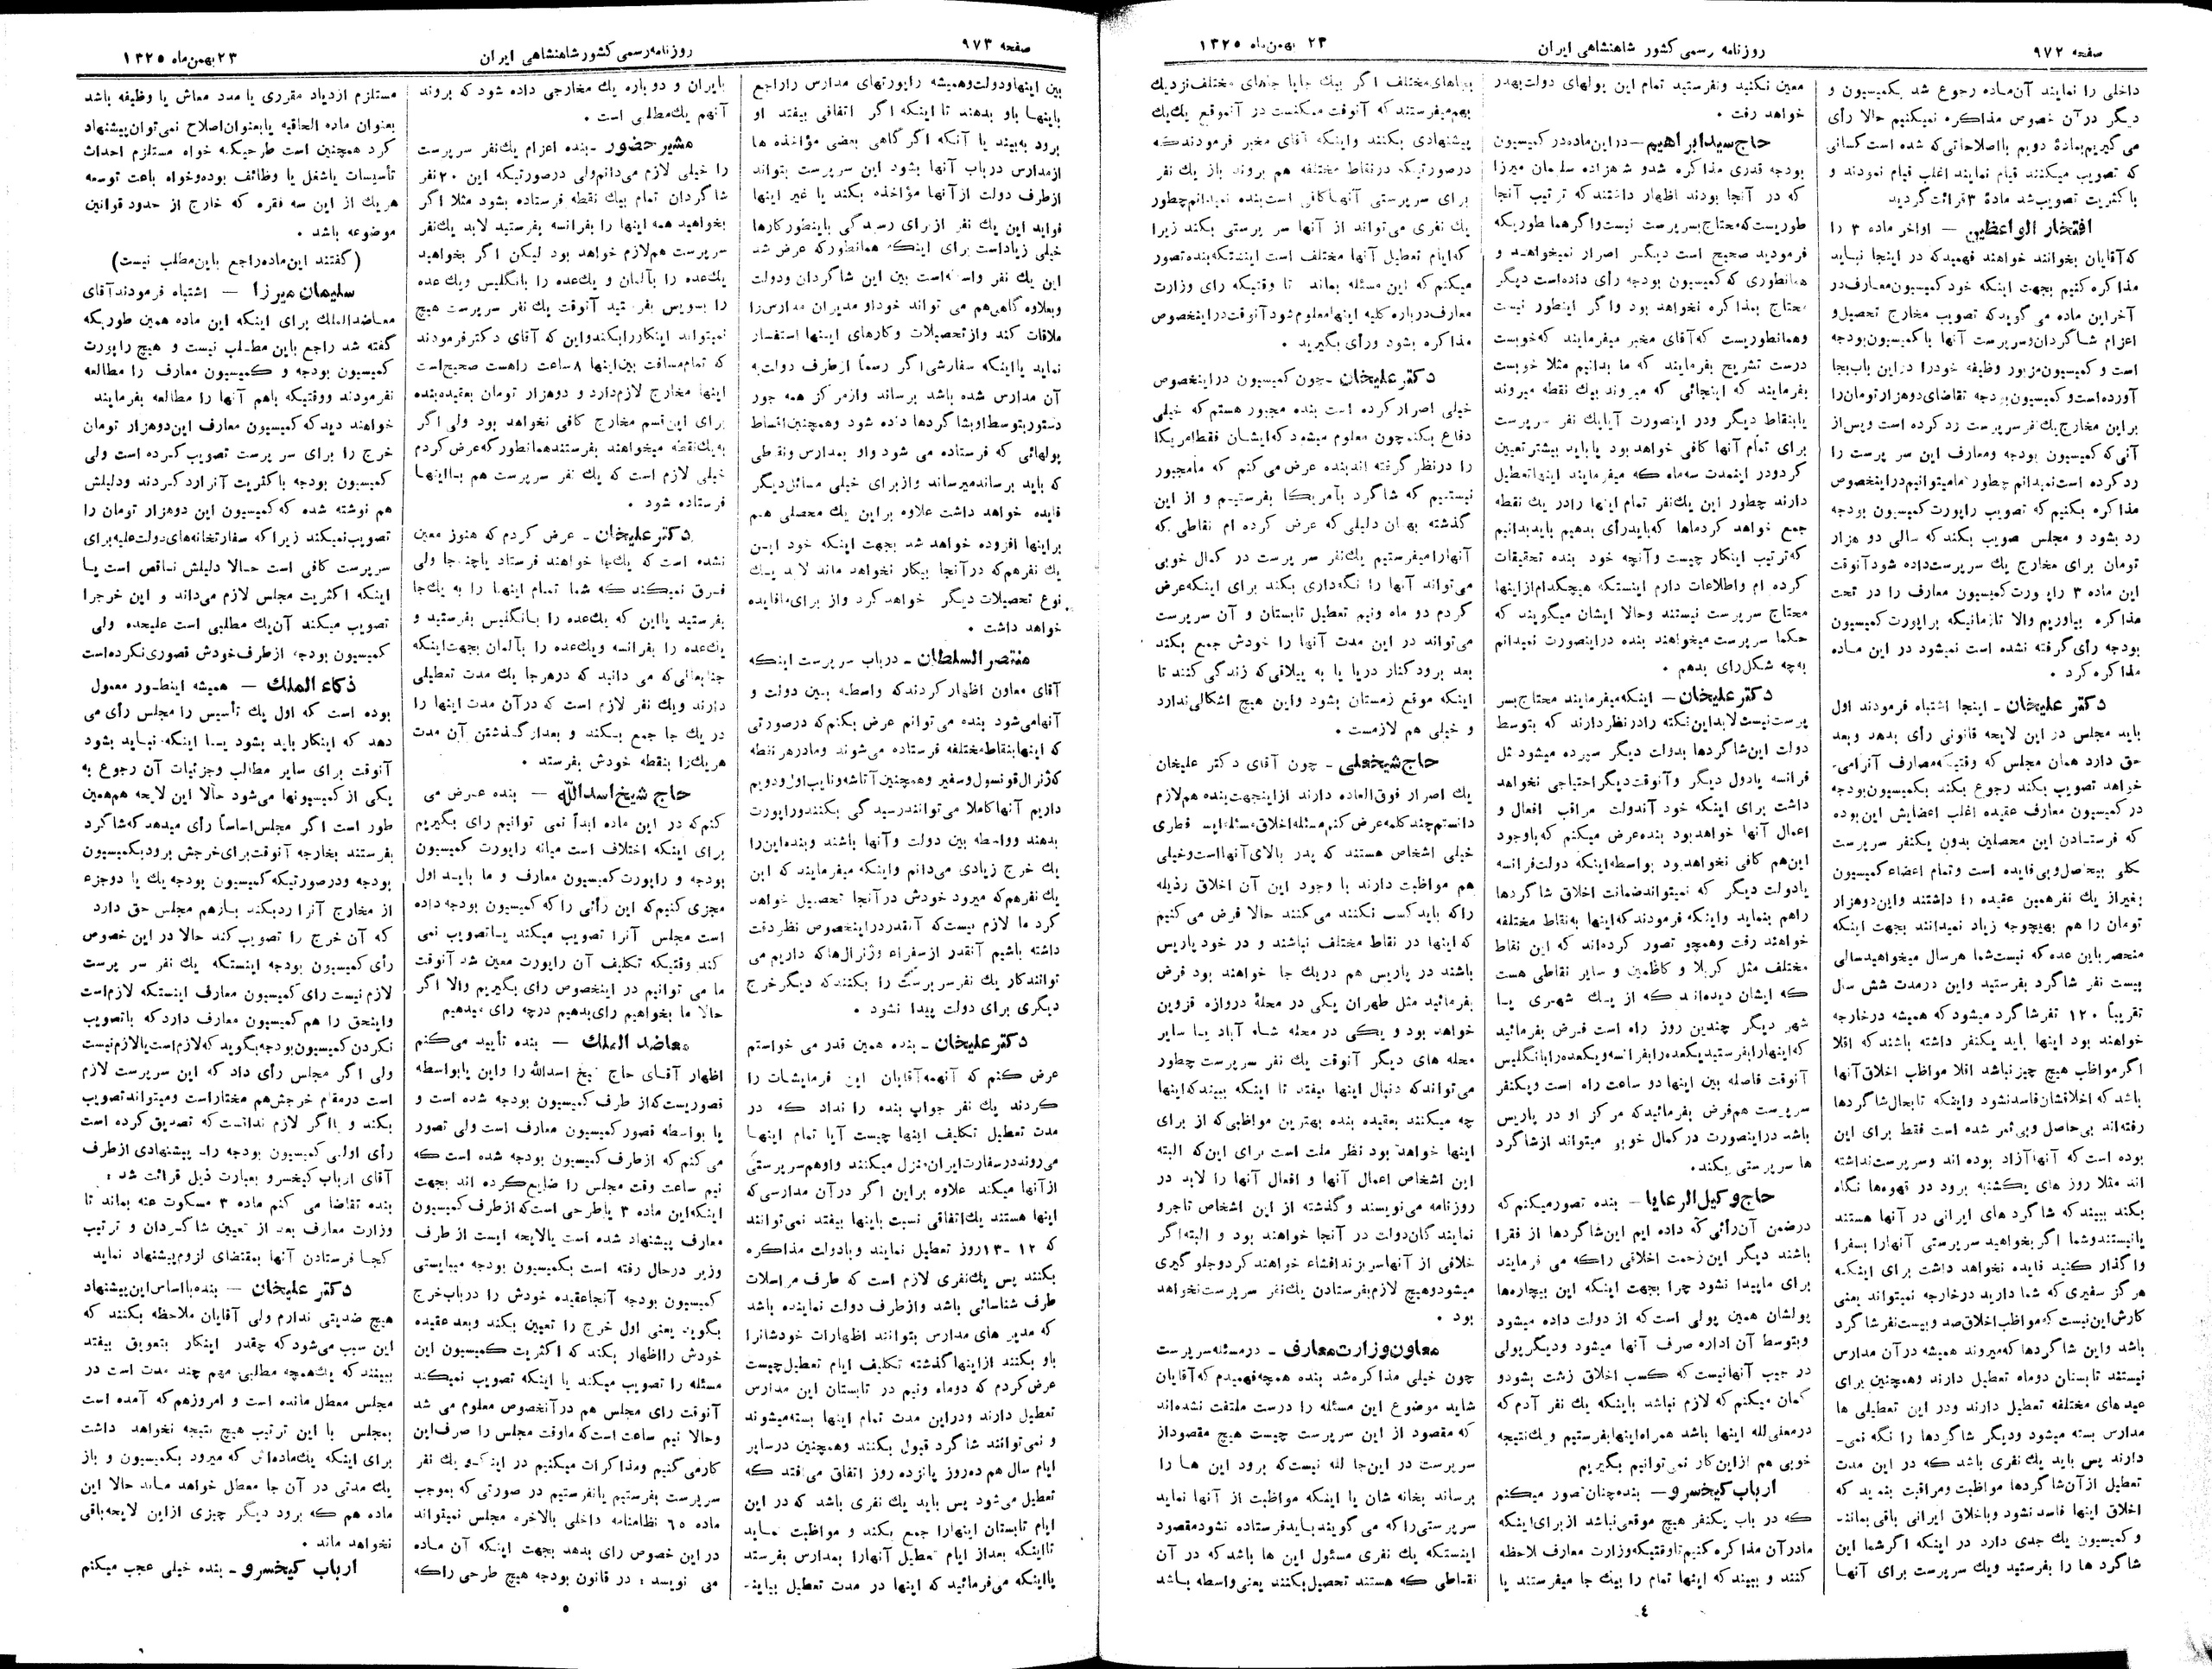 صفحه ۹۷۲
روزنامه رسمی کشور شاهنشاهی ایران
۲۳ بهمن ماه ۱۳۲۵
داخلی را نمایند آن ماده رجوع شد بکمیسیون و
دیگر در آن خصوص مذاکره نمیکنیم حالا رأی
می گیریم بمادهٔ دویم بااصلاحاتی که شده است کسانی
که تصویب میکنند قیام نمایند اغلب قیام نمودند و
با کثریت تصویب شد مادهٔ ۳ قرائت گردید
افتخار الواعظین — اواخر ماده ۳ را
که آقایان بخوانند خواهند فهمید که در اینجا نباید
مذاکره کنیم بجهت اینکه خود کمیسیون معارف در
آخر این ماده می گوید که تصویب مخارج تحصیل و
اعزام شاگردان و سرپرست آنها با کمیسیون بودجه
است و کمیسیون مزبور وظیفه خود را در این باب بجا
آورده است و کمیسیون بودجه تقاضای دو هزار تومان را
براین مخارج یك نفر سرپرست رد کرده است و پس از
آنی که کمیسیون بودجه ومعارف این سر پرست را
رد کرده است نمیدانم چطور ما میتوانیم در اینخصوص
مذاکره بکنیم که تصویب راپورت کمیسیون بودجه
رد بشود و مجلس صویب بکند که سالی دو هزار
تومان برای مخارج یك سرپرست داده شود آنوقت
این ماده ۳ راپورت کمیسیون معارف را در تحت
مذاکره بیاوریم والا تازمانیکه براپورت کمیسیون
بودجه رأی گرفته نشده است نمیشود در این ماده
مذاکره کرد .
دکتر علیخان ـ اینجا اشتباه فرمودند اول
باید مجلس در این لایحه قانونی رأی بدهد وبعد
حق دارد همان مجلس که وقتیکه معارف آنرامی‌ـ
خواهد تصویب بکند رجوع بکند بکمیسیون بودجه
در کمیسیون معارف عقیده اغلب اعضایش این بوده
که فرستادن این محصلین بدون یکنفر سرپرست
بکلی بیحاصل و بی فایده است و تمام اعضاء کمیسیون
بغیر از یك نفر همین عقیده را داشتند واین دو هزار
تومان را هم بهیچوجه زیاد نمیدانند بجهت اینکه
منحصر باین عده که نیست شما هر سال میخواهید سالی
بیست نفر شاگرد بفرستید واین درمدت شش سال
تقریباً ۱۲۰ نفر شاگرد میشود که همیشه درخارجه
خواهند بود اینها باید یکنفر داشته باشند که اقلا
اگر مواظب هیچ چیز نباشد اقلا مواظب اخلاق آنها
باشد که اخلاقشان فاسد نشود واینکه تابحال شاگردها
رفته‌اند بی حاصل وبی ثمر شده است فقط برای این
بوده است که آنها آزاد بوده اند وسرپرست نداشته
اند مثلا روز های یکشنبه برود در قهوه‌ها نگاه
بکند ببیند که شاگرد های ایرانی در آنها هستند
یا نیستند وشما اگر بخواهید سرپرستی آنها را بسفرا
واگذار کنید فایده نخواهد داشت برای اینکه
هر گز سفیری که شما دارید در خارجه نمیتواند یعنی
کارش این نیست که مواظب اخلاق صد و بیست نفر شاگرد
باشد واین شاگردها که میروند همیشه در آن مدارس
نیستند تابستان دوماه تعطیل دارند وهمچنین برای
عیدهای مختلفه تعطیل دارند ودر این تعطیلی ها
مدارس بسته میشود ودیگر شاگردها را نگه نمی‌ـ
دارند پس باید یك نفری باشد که در این مدت
تعطیل از آن شاگردها مواظبت ومراقبت بنماید که
اخلاق اینها فاسد نشود وبا اخلاق ایرانی باقی بمانند
و کمیسیون یك جدی دارد در اینکه اگر شما این
شاگرد ها را بفرستید ویك سرپرست برای آنها
معین نکنید ونفرستید تمام این پولهای دولت بهدر
خواهد رفت .
حاج سید ابراهیم — در این ماده در کمیسیون
بودجه قدری مذاکره شد و شاهزاده سلیمان میرزا
که در آنجا بودند اظهار داشتند که ترتیب آنجا
طوریست که محتاج بسرپرست نیست واگر هما طوریکه
فرمودید صحیح است دیگر اصرار نمیخواهد و
همانطوری که کمیسیون بودجه رأی داده است دیگر
محتاج بمذاکره نخواهد بود واگر اینطور نیست
وهمانطوریست که آقای مخبر میفرمایند که خوبست
درست تشریح بفرمایند که ما بدانیم مثلا خوبست
بفرمایند که اینجائی که میروند بیك نقطه میروند
یا بنقاط دیگر ودر اینصورت آیا یك نفر سرپرست
برای تمام آنها کافی خواهد بود یا باید بیشتر تعیین
گردودر اینمدت سه ماه که میفرمایند اینها تعطیل
دارند چطور این یك نفر تمام اینها را در یك نقطه
جمع خواهد کرد ماها که باید رأی بدهیم باید بدانیم
که ترتیب اینکار چیست وآنچه خود بنده تحقیقات
کرده ام واطلاعات دارم اینستکه هیچکدام از اینها
محتاج سرپرست نیستند وحالا ایشان میگویند که
حکما سرپرست میخواهند بنده در اینصورت نمیدانم
به چه شکل رای بدهم .
دکتر علیخان — اینکه میفرمایند محتاج بسر
پرست نیست لابد این نکته را در نظر دارند که بتوسط
دولت این شاگردها بدولت دیگر سپرده میشود مثل
فرانسه یا دول دیگر و آنوقت دیگر احتیاجی نخواهد
داشت برای اینکه خود آندولت مراقب افعال و
اعمال آنها خواهد بود بنده عرض میکنم که باوجود
این هم کافی نخواهد بود بواسطه اینکه دولت فرانسه
یا دولت دیگر که نمیتواند ضمانت اخلاق شاگردها
راهم بنماید واینکه فرمودند که اینها به نقاط مختلفه
خواهند رفت وهمچو تصور کرده‌اند که این نقاط
مختلف مثل کربلا و کاظمین و سایر نقاطی هست
که ایشان دیده‌اند که از یك شهری با
شهر دیگر چندین روز راه است فرض بفرمائید
که اینها را بفرستید یکعده را بفرانسه و یکعده را بانگلیس
آنوقت فاصله بین اینها دو ساعت راه است ویکنفر
سرپرست هم فرض بفرمائید که مرکز او در پاریس
باشد در اینصورت در کمال خوبی میتواند از شاگرد
ها سرپرستی بکند.
حاج وکیل الرعایا — بنده تصور میکنم که
درضمن آن رأئی که داده ایم این شاگردها از فقرا
باشند دیگر این زحمت اخلاقی را که می فرمایند
برای ما پیدا نشود چرا بجهت اینکه این بیچاره‌ها
پولشان همین پولی است که از دولت داده میشود
وبتوسط آن اداره صرف آنها میشود ودیگر پولی
در جیب آنها نیست که کسب اخلاق زشت بشود و
گمان میکنم که لازم نباشد باینکه یك نفر آدم که
در معنی لله اینها باشد همراه اینها بفرستیم و یك نتیجه
خوبی هم از این کار نمی توانیم بگیریم
ارباب کیخسرو — بنده چنان تصور میکنم
که در باب یکنفر هیچ موقعی نباشد از برای اینکه
ما در آن مذاکره کنیم تا وقتیکه وزارت معارف ملاحظه
کنند و ببیند که اینها تمام را بیك جا میفرستند یا
بجاهای مختلف اگر بیك جایا جاهای مختلف نزدیك
بهم میفرستند که آنوقت ممکنست در آنموقع یك یك
پیشنهادی بکنند واینکه آقای مخبر فرمودند که
درصورتیکه درنقاط مختلفه هم بروند باز یك نفر
برای سرپرستی آنها کافی است بنده نمیدانم چطور
یك نفری می‌تواند از آنها سرپرستی بکند زیرا
که ایام تعطیل آنها مختلف است اینستکه بنده تصور
میکنم که این مسئله بماند تا وقتیکه رای وزارت
معارف درباره کلیه اینها معلوم شود آنوقت در اینخصوص
مذاکره بشود ورأی بگیرید .
دکتر علیخان ـ چون کمیسیون در اینخصوص
خیلی اصرار کرده است بنده مجبور هستم که خیلی
دفاع بکنم چون معلوم میشود که ایشان فقط امریکا
را درنظر گرفته اند بنده عرض می کنم که ما مجبور
نیستیم که شاگرد بآمریکا بفرستیم و از این
گذشته بهمان دلیلی که عرض کرده ام نقاطی که
آنها را میفرستیم یك نفر سر پرست در کمال خوبی
می تواند آنها را نگه داری بکند برای اینکه عرض
کردم دو ماه ونیم تعطیل تابستان و آن سرپرست
می تواند در این مدت آنها را خودش جمع بکند
بعد برود کنار دریا یا به ییلاقی که زندگی کنند تا
اینکه موقع زمستان بشود واین هیچ اشکالی ندارد
و خیلی هم لازمست .
حاج شیخعلی ـ چون آقای دکتر علیخان
یك اصرار فوق العاده دارند از اینجهت بنده هم لازم
دانستم چند کلمه عرض کنم مسئله اخلاق مسئله ایست فطری
خیلی اشخاص هستند که پدر بالای آنها است وخیلی
هم مواظبت دارند با وجود این آن اخلاق رذیله
را که باید کسب نکنند می کنند حالا فرض می کنیم
که اینها در نقاط مختلف نباشند و در خود پاریس
باشند در پاریس هم در یك جا خواهند بود فرض
بفرمائید مثل طهران یکی در محلهٔ دروازه قزوین
خواهد بود و یکی در محله شاه آباد یا سایر
محله های دیگر آنوقت یك نفر سرپرست چطور
می تواند که دنبال اینها بیفتد تا اینکه ببیند که اینها
چه میکنند بعقیده بنده بهترین مواظبی که از برای
اینها خواهد بود نظر ملت است برای این که البته
این اشخاص اعمال آنها و افعال آنها را لابد در
روزنامه می نویسند و گذشته از این اشخاص تاجر و
نمایندگان دولت در آنجا خواهند بود و البته اگر
خلافی از آنها سر بزند افشاء خواهند کرد و جلو گیری
میشود وهیچ لازم بفرستادن یك نفر سرپرست نخواهد
بود .
معاون وزارت معارف ـ در مسئله سرپرست
چون خیلی مذاکره شد بنده همچه فهمیدم که آقایان
شاید موضوع این مسئله را درست ملتفت نشده‌اند
که مقصود از این سرپرست چیست هیچ مقصود از
سرپرست در این جا لله نیست که برود این ها را
برساند بخانه شان یا اینکه مواظبت از آنها نماید
سرپرستی را که می گویند باید فرستاده شود مقصود
اینستکه یك نفری مسئول این ها باشد که در آن
نقاطی که هستند تحصیل بکنند یعنی واسطه باشد
٤
صفحه ۹۷۳
روزنامه رسمی کشور شاهنشاهی ایران
۲۳ بهمن ماه ۱۳۲۵
بین اینها ودولت وهمیشه راپورتهای مدارس را راجع
باینها باو بدهند تا اینکه اگر اتفاقی بیفتد او
برود به بیند یا آنکه اگر گاهی بعضی مؤاخذه ها
از مدارس درباب آنها بشود این سرپرست بتواند
از طرف دولت از آنها مؤاخذه بکند یا غیر اینها
فواید این یك نفر از برای رسیدگی باینطور کارها
خیلی زیاد است برای اینکه همانطور که عرض شد
این یك نفر واسطه است بین این شاگردان ودولت
وبعلاوه گاهی هم می تواند خود او مدیران مدارس را
ملاقات کند واز تحصیلات وکارهای اینها استفسار
نماید یا اینکه سفارشی اگر رسماً از طرف دولت به
آن مدارس شده باشد برساند واز مرکز همه جور
دستور بتوسط او بشاگردها داده شود وهمچنین اقساط
پولهائی که فرستاده می شود واو بمدارس ونقطی
که باید برساند میرساند واز برای خیلی مسائل دیگر
فایده خواهد داشت علاوه براین یك محصلی هم
براینها افزوده خواهد شد بجهت اینکه خود این
یك نفر هم که در آنجا بیکار نخواهد ماند لابد یك
نوع تحصیلات دیگر خواهد کرد واز برای ما فایده
خواهد داشت .
منتصر السلطان ـ درباب سرپرست اینکه
آقای معاون اظهار کردند که واسطه بین دولت و
آنها می شود بنده می توانم عرض بکنم که درصورتی
که اینها بنقاط مختلفه فرستاده می شوند وما در هر نقطه
که ژنرال قونسول وسفیر وهمچنین آتاشه ونایب اول ودویم
داریم آنها کاملا می توانند رسیدگی بکنند وراپورت
بدهند وواسطه بین دولت وآنها باشند وبنده این را
یك خرج زیادی می دانم واینکه میفرمایند که این
یك نفر هم که میرود خودش در آنجا تحصیل خواهد
کرد ما لازم نیست که آنقدر در اینخصوص نظر دقت
داشته باشیم آنقدر از سفراء وژنرال ها که داریم می
توانند کار یك نفر سرپرست را بکنند که دیگر خرج
دیگری برای دولت پیدا نشود .
دکتر علیخان ـ بنده همین قدر می خواستم
عرض کنم که آنهمه آقایان این فرمایشات را
کردند یك نفر جواب بنده را نداد که در
مدت تعطیل تکلیف اینها چیست آیا تمام اینها
می روند در سفارت ایران منزل میکنند واوهم سرپرستی
از آنها میکند علاوه براین اگر در آن مدارسی که
اینها هستند یك اتفاقی نسبت باینها بیفتد نمی توانند
که ۱۲ ـ ۱۳ روز تعطیل نمایند وبا دولت مذاکره
بکنند پس یك نفری لازم است که طرف مراسلات
طرف شناسائی باشد واز طرف دولت نماینده باشد
که مدیر های مدارس بتوانند اظهارات خودشانرا
باو بکنند از اینها گذشته تکلیف ایام تعطیل چیست
عرض کردم که دوماه ونیم در تابستان این مدارس
تعطیل دارند ودر این مدت تمام اینها بسته میشوند
و نمی توانند شاگرد قبول بکنند وهمچنین در سایر
ایام سال هم ده روز پانزده روز اتفاق می افتد که
تعطیل می شود پس باید یك نفری باشد که در این
ایام تابستان اینها را جمع بکند و مواظبت نماید
تا اینکه بعد از ایام تعطیل آنها را بمدارس بفرستد
یا اینکه می فرمائید که اینها در مدت تعطیل بیایندـ
بایران و دوباره یك مخارجی داده شود که بروند
آنهم یك مطلبی است .
مشیر حضور ـ بنده اعزام یك نفر سرپرست
را خیلی لازم می دانم ولی درصورتیکه این ۲۰ نفر
شاگردان تمام بیك نقطه فرستاده بشود مثلا اگر
بخواهید همه اینها را بفرانسه بفرستید لابد یك نفر
سرپرست هم لازم خواهد بود لیکن اگر بخواهید
یك عده را بآلمان و یك عده را بانگلیس ویك عده
را بسویس بفرستید آنوقت یك نفر سرپرست هیچ
نمیتواند اینکار را بکند واین که آقای دکتر فرمودند
که تمام مسافت بین اینها ۸ ساعت راهست صحیح است
اینها مخارج لازم دارد و دو هزار تومان بعقیده بنده
برای این قسم مخارج کافی نخواهد بود ولی اگر
به یك نقطه میخواهند بفرستند همانطور که عرض کردم
خیلی لازم است که یك نفر سرپرست هم با اینها
فرستاده شود .
دکتر علیخان ـ عرض کردم که هنوز معین
نشده است که یك جا خواهند فرستاد یا چند جا ولی
فرق نمیکند که شما تمام اینها را به یك جا
بفرستید یا این که یك عده را بانگلیس بفرستید و
یك عده را بفرانسه ویك عده را بآلمان بجهت اینکه
جنابعالی که می دانید که در هر جا یك مدت تعطیلی
دارند ویك نفر لازم است که در آن مدت اینها را
در یك جا جمع بکند و بعد از گذشتن آن مدت
هر یك را بنقطه خودش بفرستد .
حاج شیخ اسدالله — بنده عرض می
کنم که در این ماده ابداً نمی توانیم رای بگیریم
برای اینکه اختلاف است میانه راپورت کمیسیون
بودجه و راپورت کمیسیون معارف و ما باید اول
مجزی کنیم که این رأئی را که کمیسیون بودجه داده
است مجلس آنرا تصویب میکند یا تصویب نمی
کند وقتیکه تکلیف آن راپورت معین شد آنوقت
ما می توانیم در اینخصوص رای بگیریم والا اگر
حالا ما بخواهیم رای بدهیم درچه رای میدهیم
معاضد الملك — بنده تأیید می کنم
اظهار آقای حاج شیخ اسدالله را واین یا بواسطه
قصوریست که از طرف کمیسیون بودجه شده است و
یا بواسطه قصور کمیسیون معارف است ولی تصور
می کنم که از طرف کمیسیون بودجه شده است که
نیم ساعت وقت مجلس را ضایع کرده اند بجهت
اینکه این ماده ۳ یا طرحی است که از طرف کمیسیون
معارف پیشنهاد شده است یا لایحه ایست از طرف
وزیر درحال رفته است بکمیسیون بودجه میبایستی
کمیسیون بودجه آنجا عقیده خودش را درباب خرج
بگوید یعنی اول خرج را تعیین بکند وبعد عقیده
خودش را اظهار بکند که اکثریت کمیسیون این
مسئله را تصویب میکند یا اینکه تصویب نمیکند
آنوقت رای مجلس هم در آنخصوص معلوم می شد
وحالا نیم ساعت است که ما وقت مجلس را صرف این
کار می کنیم ومذاکرات میکنیم در اینکه یك نفر
سرپرست بفرستیم یا نفرستیم در صورتی که بموجب
ماده ٦٥ نظامنامه داخلی بالاخره مجلس نمیتواند
در این خصوص رای بدهد بجهت اینکه آن ماده
می نویسد : در قانون بودجه هیچ طرحی را که
مستلزم ازدیاد مقرری یا مدد معاش یا وظیفه باشد
بعنوان ماده الحاقیه یا بعنوان اصلاح نمی توان پیشنهاد
کرد همچنین است طرحیکه خواه مستلزم احداث
تأسیسات یا شغل یا وظائف بوده وخواه باعث توسعه
هر یك از این سه فقره که خارج از حدود قوانین
موضوعه باشد .
(گفتند این ماده راجع باین مطلب نیست)
سلیمان میرزا — اشتباه فرمودند آقای
معاضد الملك برای اینکه این ماده همین طوریکه
گفته شد راجع باین مطلب نیست و هیچ راپورت
کمیسیون بودجه و کمیسیون معارف را مطالعه
نفرمودند ووقتیکه باهم آنها را مطالعه بفرمایند
خواهند دید که کمیسیون معارف این دوهزار تومان
خرج را برای سر پرست تصویب کرده است ولی
کمیسیون بودجه باکثریت آنرا رد کردند ودلیلش
هم نوشته شده که کمیسیون این دوهزار تومان را
تصویب نمیکند زیرا که سفارتخانه های دولت علیه برای
سرپرست کافی است حالا دلیلش ناقص است یا
اینکه اکثریت مجلس لازم می داند و این خرجرا
تصویب میکند آن یك مطلبی است علیحده ولی
کمیسیون بودجه از طرف خودش قصوری نکرده است
ذکاء الملك — همیشه اینطور معمول
بوده است که اول یك تأسیس را مجلس رأی می
دهد که اینکار باید بشود یا اینکه نباید بشود
آنوقت برای سایر مطالب وجزئیات آن رجوع به
یکی از کمیسیونها می شود حالا این لایحه هم همین
طور است اگر مجلس اساساً رأی میدهد که شاگرد
بفرستند بخارجه آنوقت برای خرجش برود بکمیسیون
بودجه ودرصورتیکه کمیسیون بودجه یك یا دو جزء
از مخارج آنرا رد بکند باز هم مجلس حق دارد
که آن خرج را تصویب کند حالا در این خصوص
رأی کمیسیون بودجه اینستکه یك نفر سر پرست
لازم نیست رای کمیسیون معارف اینستکه لازم است
واینحق را هم کمیسیون معارف دارد که با تصویب
نکردن کمیسیون بودجه بگوید که لازم است یا لازم نیست
ولی اگر مجلس رأی داد که این سرپرست لازم
است درمقام خرجش هم مختار است ومیتواند تصویب
بکند و یا اگر لازم ندانست که تصدیق کرده است
رأی اولی کمیسیون بودجه را پیشنهادی از طرف
آقای ارباب کیخسرو بعبارت ذیل قرائت شد :
بنده تقاضا می کنم ماده ۳ مسکوت عنه بماند تا
وزارت معارف بعد از تعیین شاگردان و ترتیب
کجا فرستادن آنها بمقتضای لزوم پیشنهاد نماید
دکتر علیخان — بنده با اساس این پیشنهاد
هیچ ضدیتی ندارم ولی آقایان ملاحظه بکنند که
این سبب می شود که چقدر اینکار بتعویق بیفتد
ببینند که یك همچه مطلبی مهم چند مدت است در
مجلس معطل مانده است و امروز هم که آمده است
بمجلس با این ترتیب هیچ نتیجه نخواهد داشت
برای اینکه یك ماده‌اش که میرود بکمیسیون و باز
یك مدتی در آن جا معطل خواهد ماند حالا این
ماده هم که برود دیگر چیزی از این لایحه باقی
نخواهد ماند .
ارباب کیخسرو ـ بنده خیلی عجب میکنم
٥